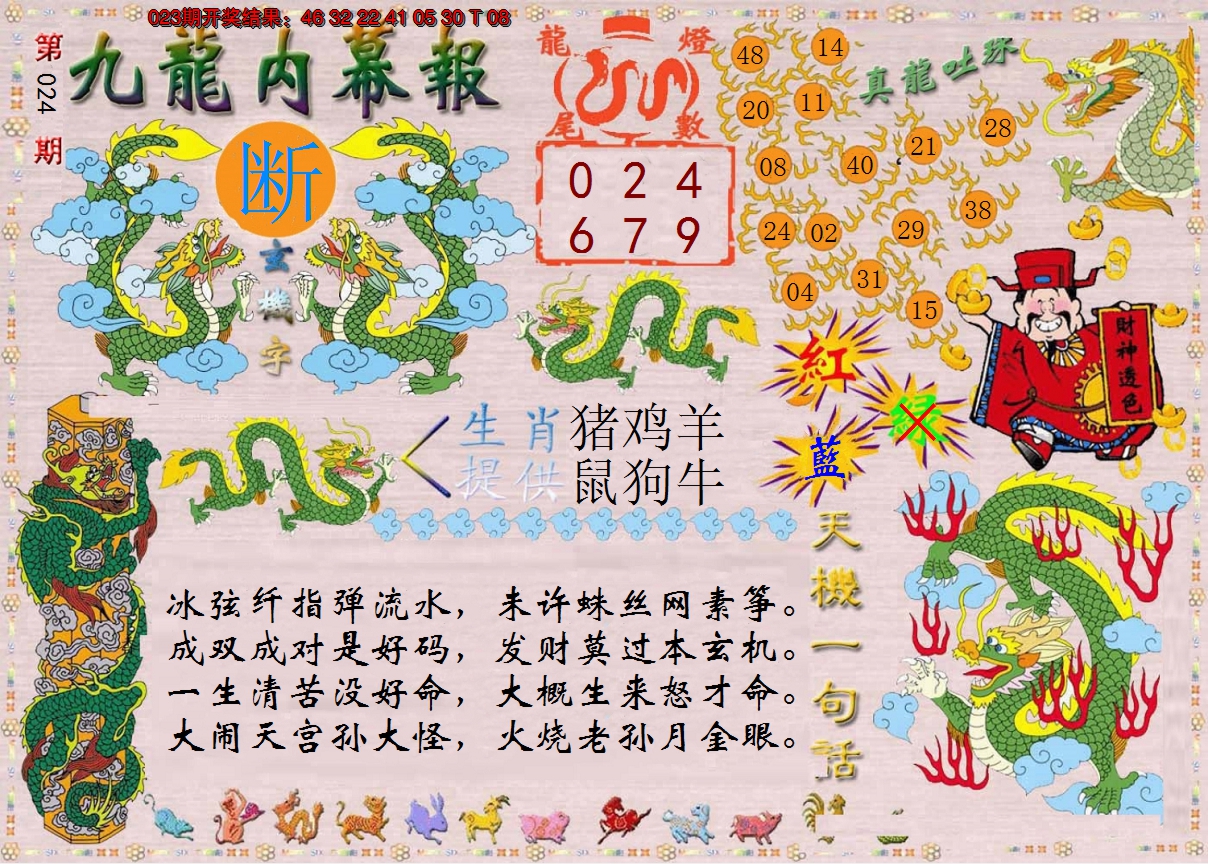 023期开奖结果：46 32 22 41 05 30 T 08
第024期
九龍内幕報
断
玄機字
龍燈
尾數
0 2 4
6 7 9
真龍吐珠
48
14
20
11
28
21
08
40
38
24
02
29
31
04
15
財神透色
紅
綠
藍
生肖 猪鸡羊
提供 鼠狗牛
天機一句話
冰弦纤指弹流水，未许蛛丝网素筝。
成双成对是好码，发财莫过本玄机。
一生清苦没好命，大概生来怒才命。
大闹天宫孙大怪，火烧老孙月金眼。